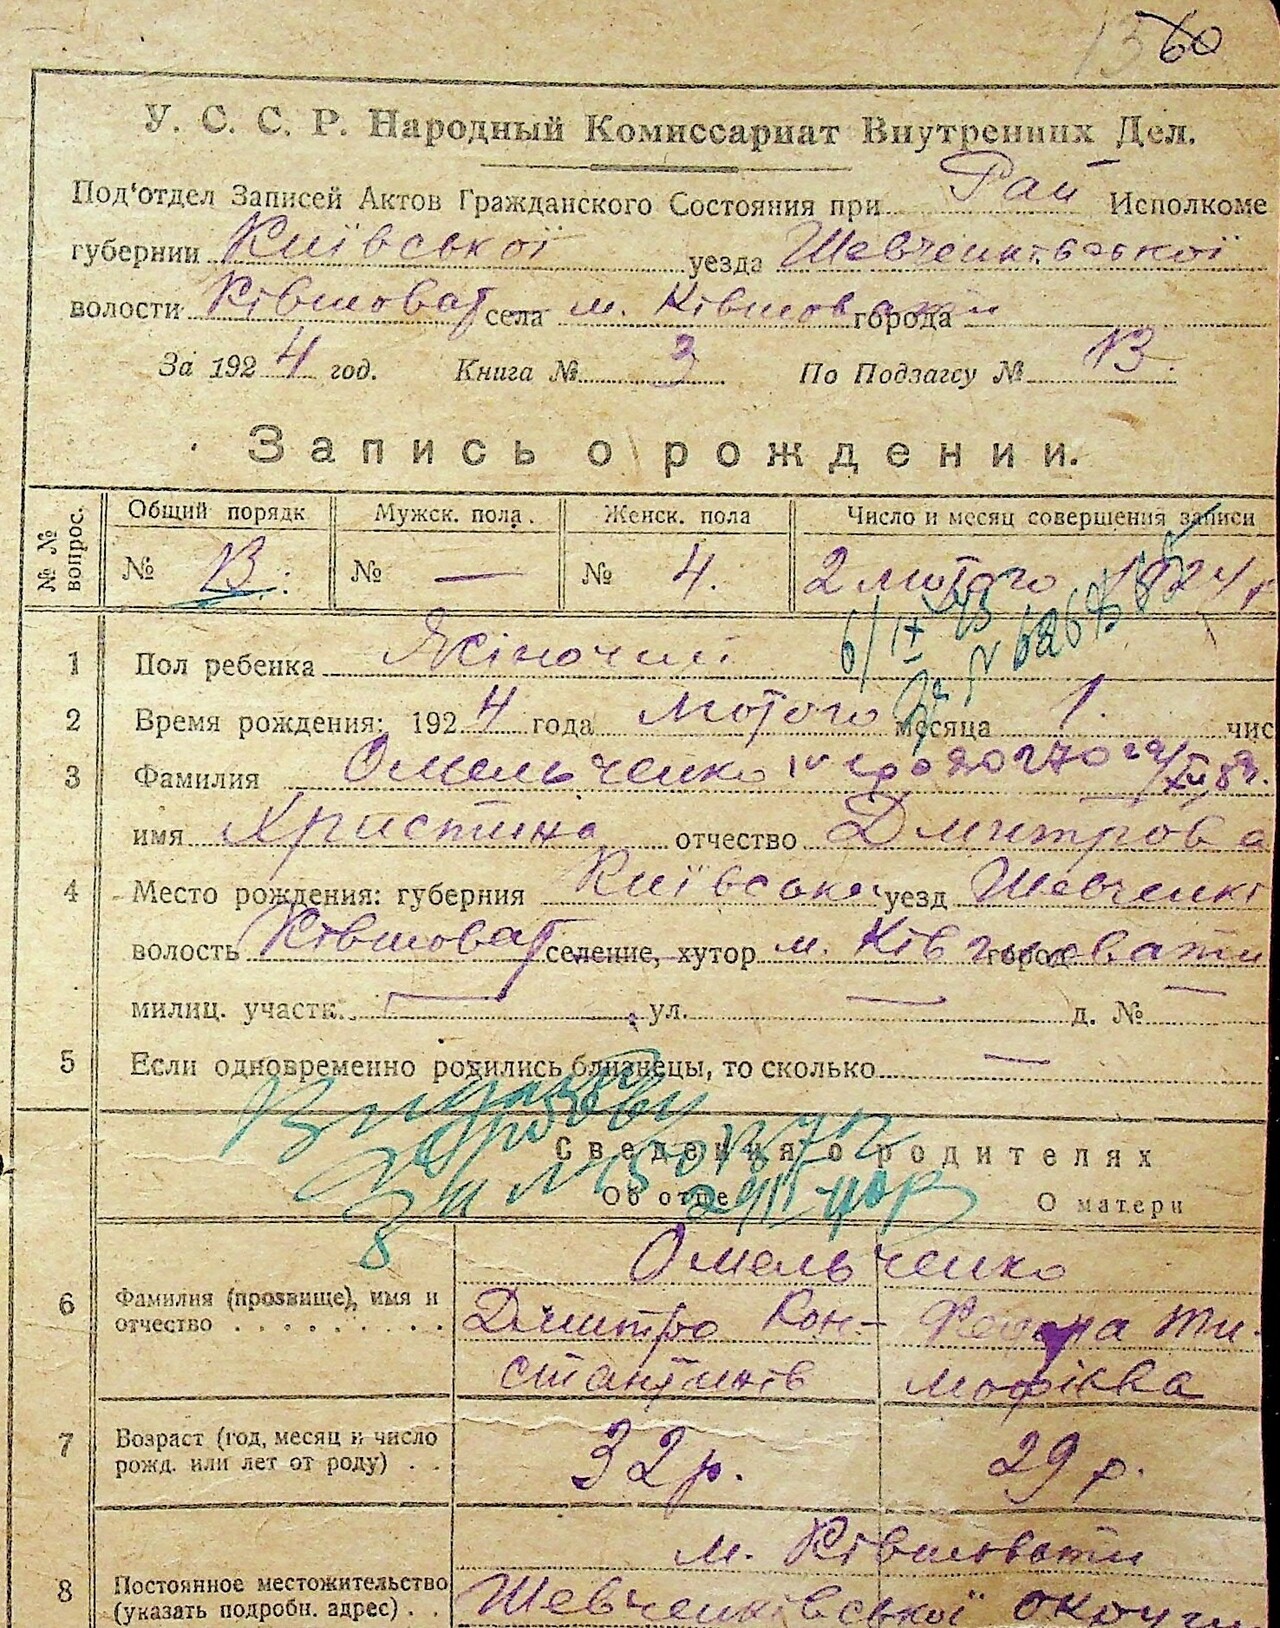 60
У. С. С. Р. Народный Комиссариат Внутренних Дел.
Под‘отдел Записей Актов Гражданского Состояния при Рай Исполкоме
губернии Київської уезда Шевченківської
волости Ківшоват села м. Ківшовати города
За 1924 год. Книга № 3 По Подзагсу № 13.
Запись о рождении.
№ № вопрос. Общий порядк Мужск. пола. Женск. пола Число и месяц совершения записи
№ 13. № — № 4. 2 лютого 1924 р
6/IX
1 Пол ребенка Жіночий
2 Время рождения: 1924 года лютого месяца 1. чис
3 Фамилия Омельченко
имя Христина отчество Дмитрова
4 Место рождения: губерния Київська уезд Шевченкі
волость Ківшоват селение, хутор м. Ківшовати город
милиц. участк. — ул. — д. № —
5 Если одновременно родились близнецы, то сколько —
Сведения о родителях
Об отце О матери
Омельченко
6 Фамилия (прозвище), имя и отчество Дмитро Кон-
стантинів
Ти-
мофіївна
7 Возраст (год, месяц и число рожд. или лет от роду) 32 р. 29 р.
м. Ківшовати
8 Постоянное местожительство (указать подробн. адрес) Шевченківської округи